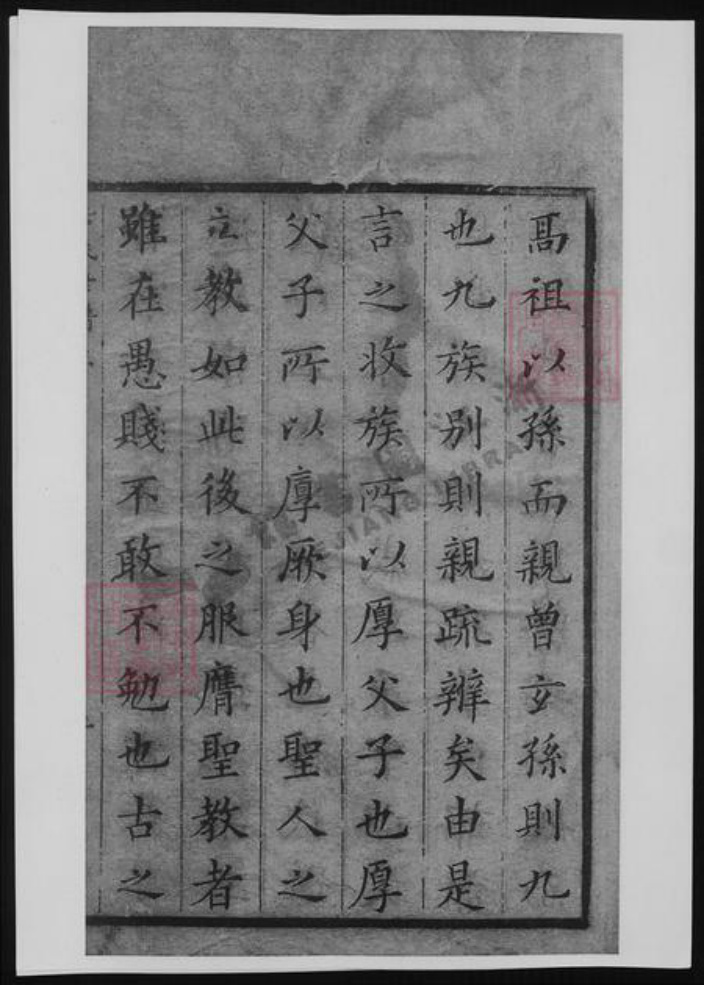 髙祖以孫而親曾玄孫則九
也九族別則親疏辨矣由是
言之收族所以厚父子也厚
父子所以厚厥身也聖人之
立教如此後之服膺聖教者
雖在愚賤不敢不勉也古之